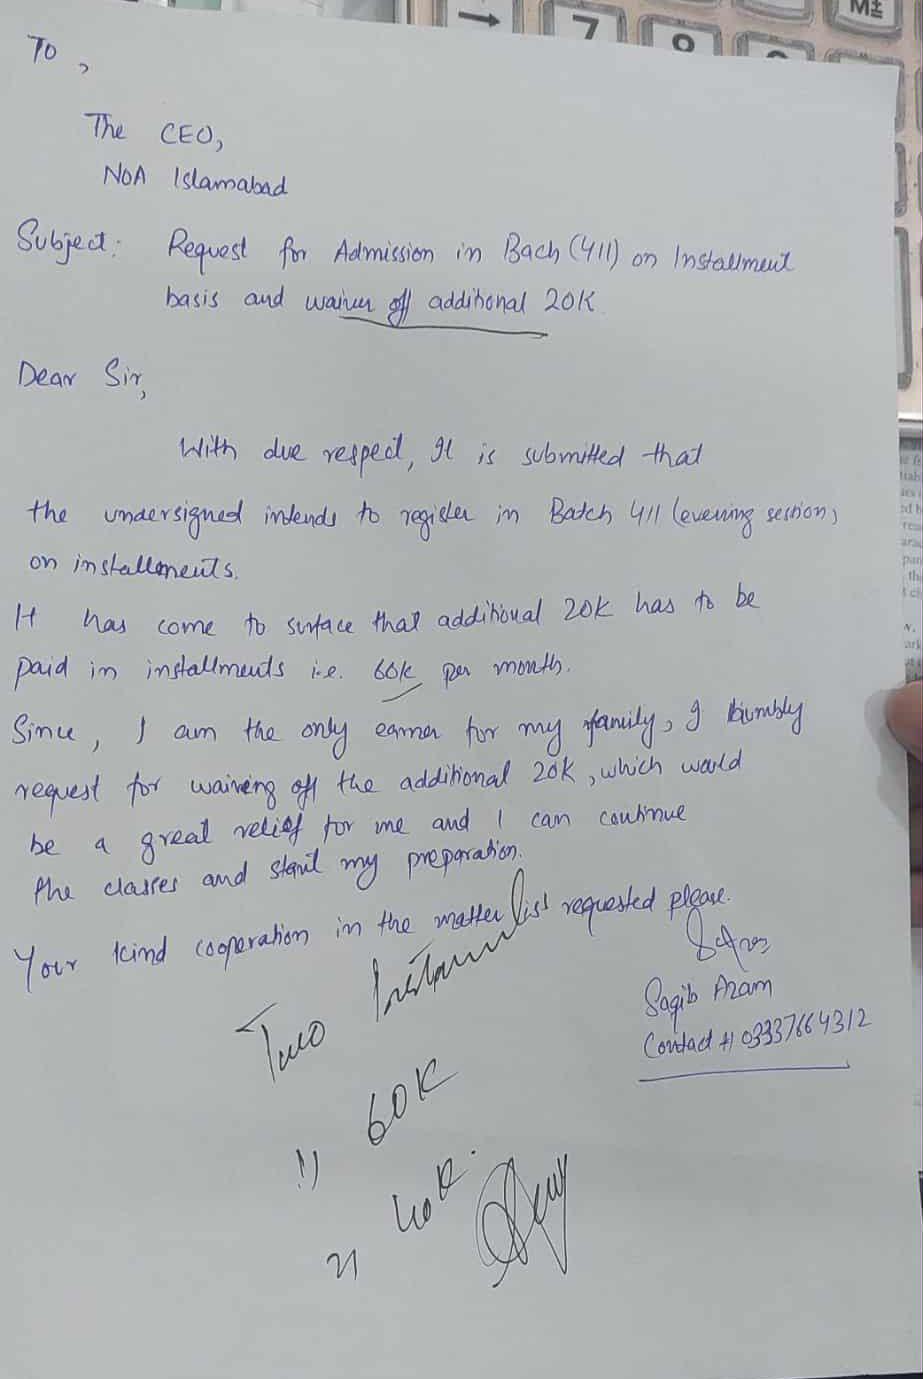 → 7 8 9 M±
To,
The CEO,
NOA Islamabad
Subject: Request for Admission in Bach (411) on Installment
basis and waiver off additional 20K.
Dear Sir,
With due respect, It is submitted that
the undersigned intends to register in Batch 411 (evening session)
on installments.
It has come to surface that additional 20K has to be
paid in installments i.e. 60k per month.
Since, I am the only earner for my family, I humbly
request for waiving off the additional 20K, which would
be a great relief for me and I can continue
the classes and start my preparation.
Your kind cooperation in the matter is requested please.
Saqib Azam
Contact # 03337664312
Two Instalments
1) 60K
2) 40K.